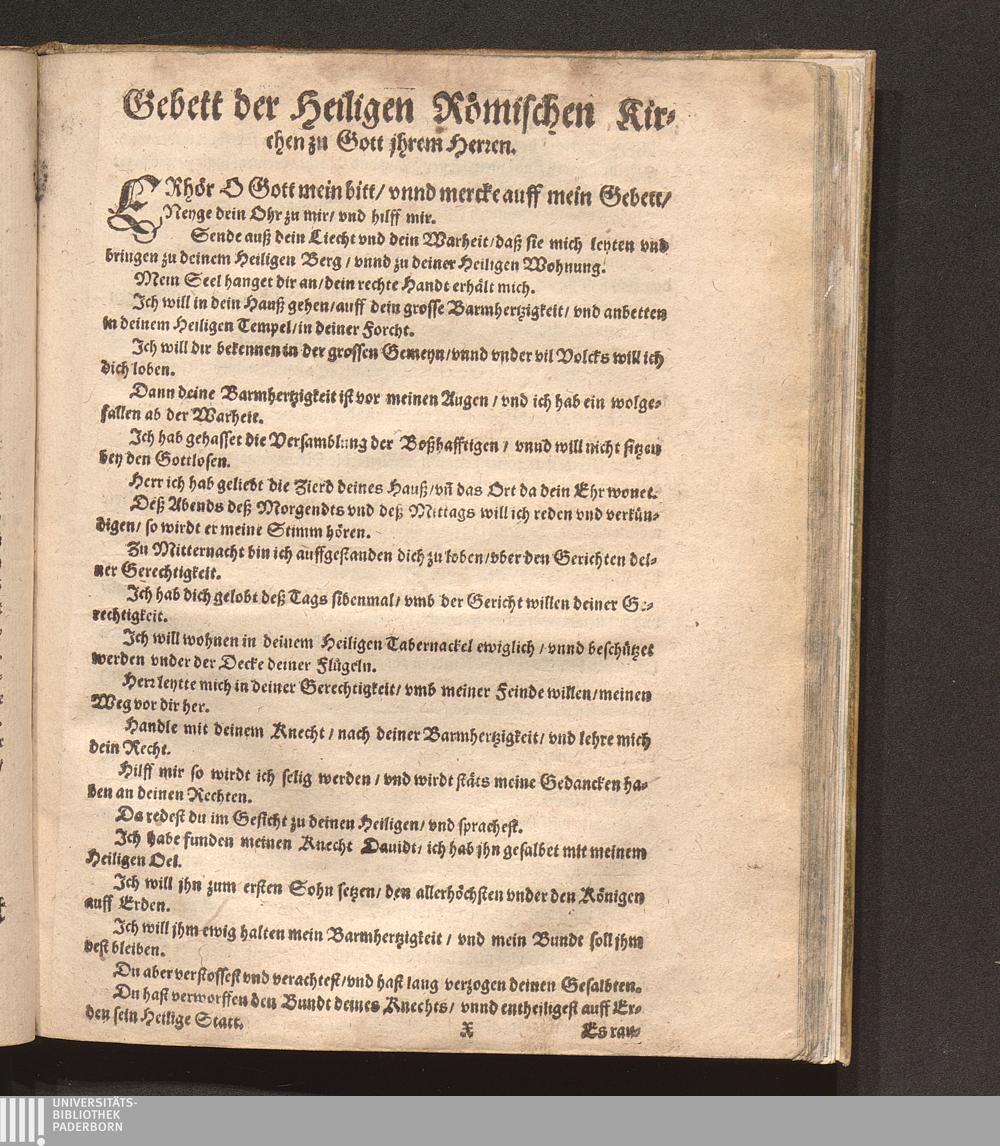 Gebett der Heiligen Römischen Kir-
chen zu Gott jhrem Herren.
ERhör O Gott mein bitt/ vnnd mercke auff mein Gebett/
Neyge dein Ohr zu mir/ vnd hilff mir.
Sende auß dein Liecht vnd dein Warheit/ daß sie mich leyten vnd
bringen zu deinem Heiligen Berg / vnnd zu deiner Heiligen Wohnung.
Mein Seel hanget dir an/ dein rechte Handt erhält mich.
Ich will in dein Hauß gehen/ auff dein grosse Barmhertzigkeit/ vnd anbetten
in deinem Heiligen Tempel/ in deiner Forcht.
Ich will dir bekennen in der grossen Gemeyn/ vnnd vnder vil Volcks will ich
dich loben.
Dann deine Barmhertzigkeit ist vor meinen Augen / vnd ich hab ein wolge-
fallen ab der Warheit.
Ich hab gehasset die Versamblung der Boßhafftigen / vnnd will nicht sitzen
bey den Gottlosen.
Herr ich hab geliebt die Zierd deines Hauß/ vñ das Ort da dein Ehr wonet.
Deß Abends deß Morgendts vnd deß Mittags will ich reden vnd verkün-
digen/ so wirdt er meine Stimm hören.
Zu Mitternacht bin ich auffgestanden dich zu loben/ vber den Gerichten dei-
ner Gerechtigkeit.
Ich hab dich gelobt deß Tags sibenmal/ vmb der Gericht willen deiner Ge-
rechtigkeit.
Ich will wohnen in deinem Heiligen Tabernackel ewiglich / vnnd beschützet
werden vnder der Decke deiner Flügeln.
Herr leytte mich in deiner Gerechtigkeit/ vmb meiner Feinde willen/ meinen
Weg vor dir her.
Handle mit deinem Knecht / nach deiner Barmhertzigkeit/ vnd lehre mich
dein Recht.
Hilff mir so wirdt ich selig werden / vnd wirdt stäts meine Gedancken ha-
ben an deinen Rechten.
Da redest du im Gesicht zu deinen Heiligen/ vnd sprachest.
Ich habe funden meinen Knecht Dauidt/ ich hab jhn gesalbet mit meinem
Heiligen Oel.
Ich will jhn zum ersten Sohn setzen/ den allerhöchsten vnder den Königen
auff Erden.
Ich will jhm ewig halten mein Barmhertzigkeit / vnd mein Bundt soll jhm
vest bleiben.
Du aber verstossest vnd verachtest/ vnd hast lang verzogen deinen Gesalbten.
Du hast verworffen den Bundt deines Knechts/ vnnd entheiligest auff Er-
den sein Heilige Statt.
X Es rau-
UNIVERSITÄTS-
BIBLIOTHEK
PADERBORN